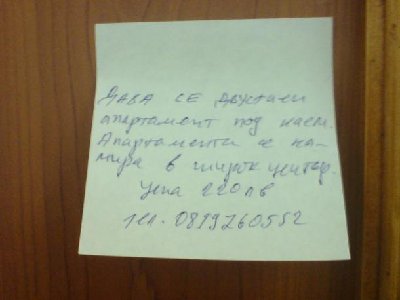 Дава се двустаен
апартамент под наем.
Апартамента се на-
мира в широк център.
Цена 220 лв
тел. 0819260552